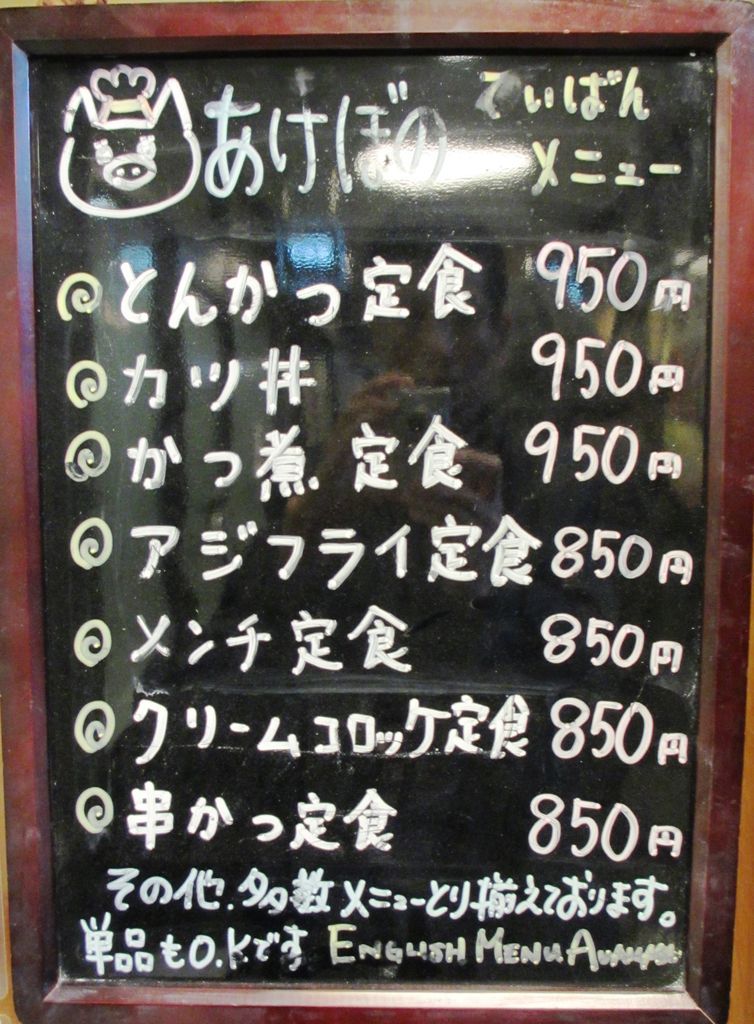 あけぼの
ていばん
メニュー
とんかつ定食 950円
カツ丼 950円
かつ煮 定食 950円
アジフライ定食 850円
メンチ定食 850円
クリームコロッケ定食 850円
串かつ定食 850円
その他.多数メニューとり揃えております。
単品もO.Kです ENGLISH MENU AVAILABLE